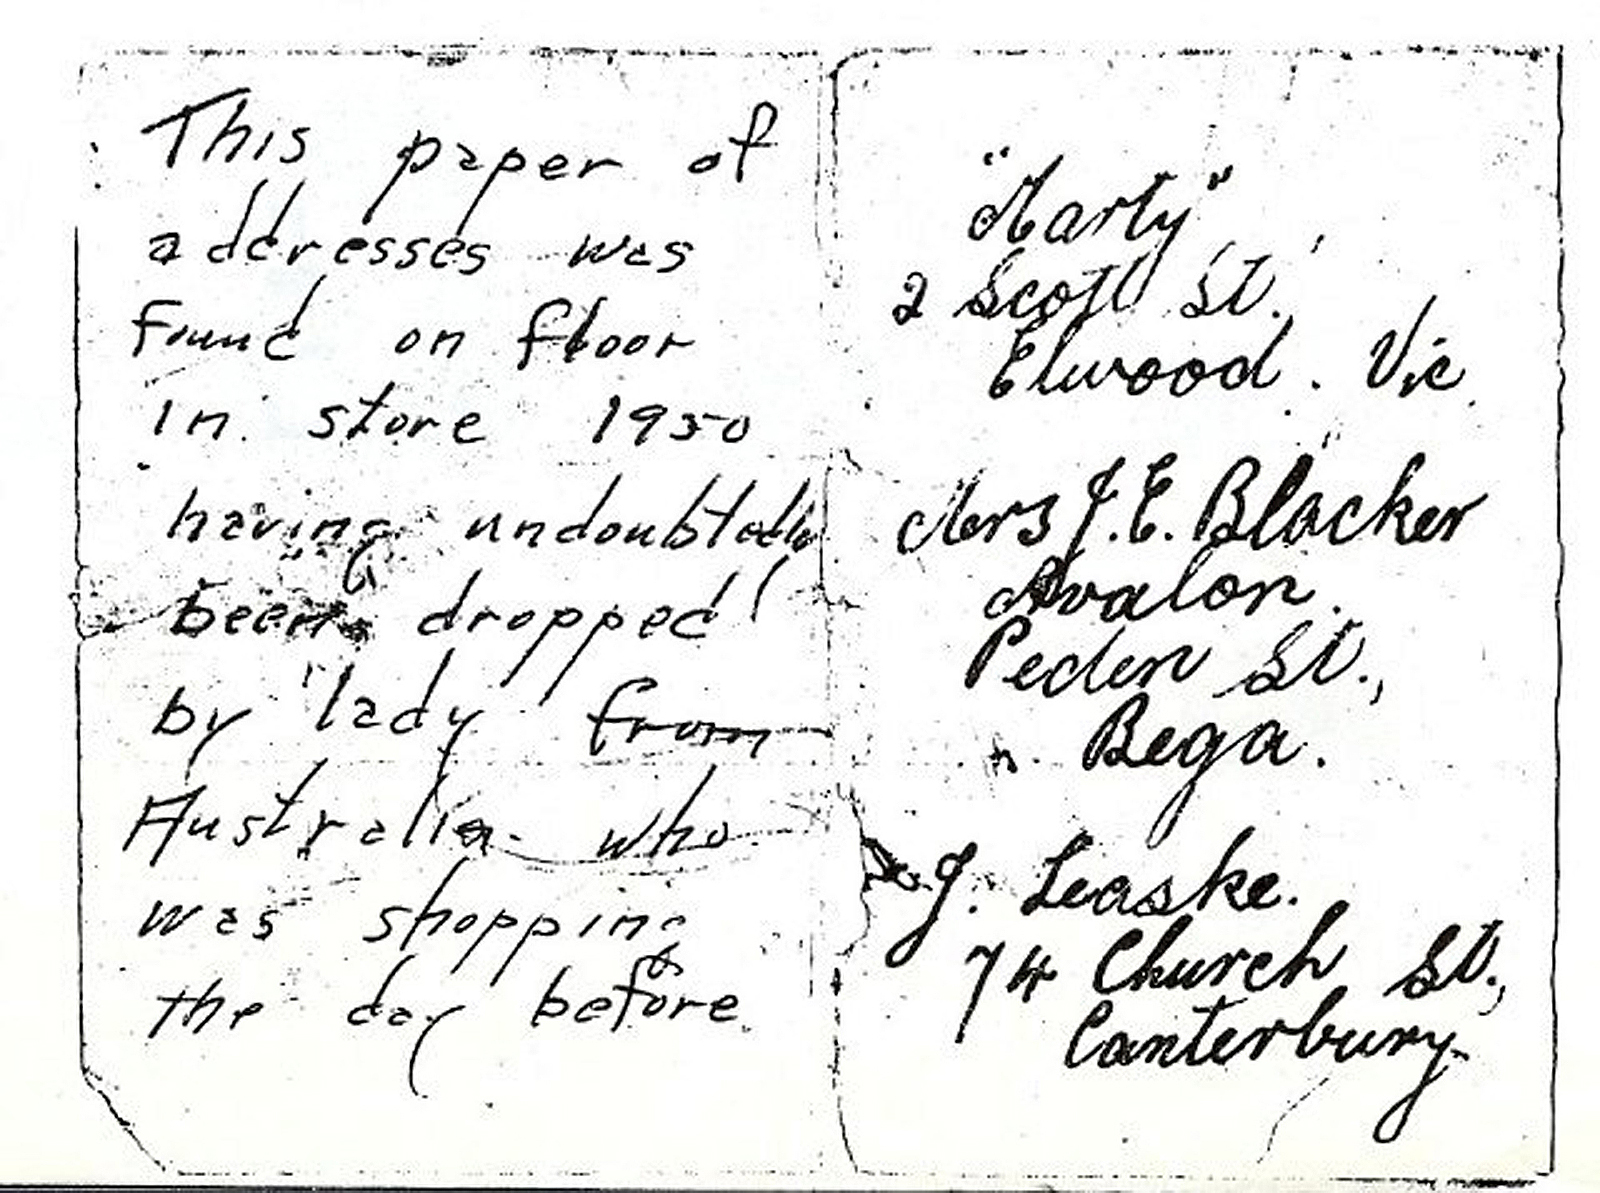 This paper of
addresses was
found on floor
in store 1950
having undoubtedly
been dropped
by lady from
Australia who
was shopping
the day before.
"Marty"
2 Scott St.,
Elwood. Vic.
Mrs J.E. Blacker
Avalon.
Peden St.,
Bega.
J. Leaske.
74 Church St.,
Canterbury